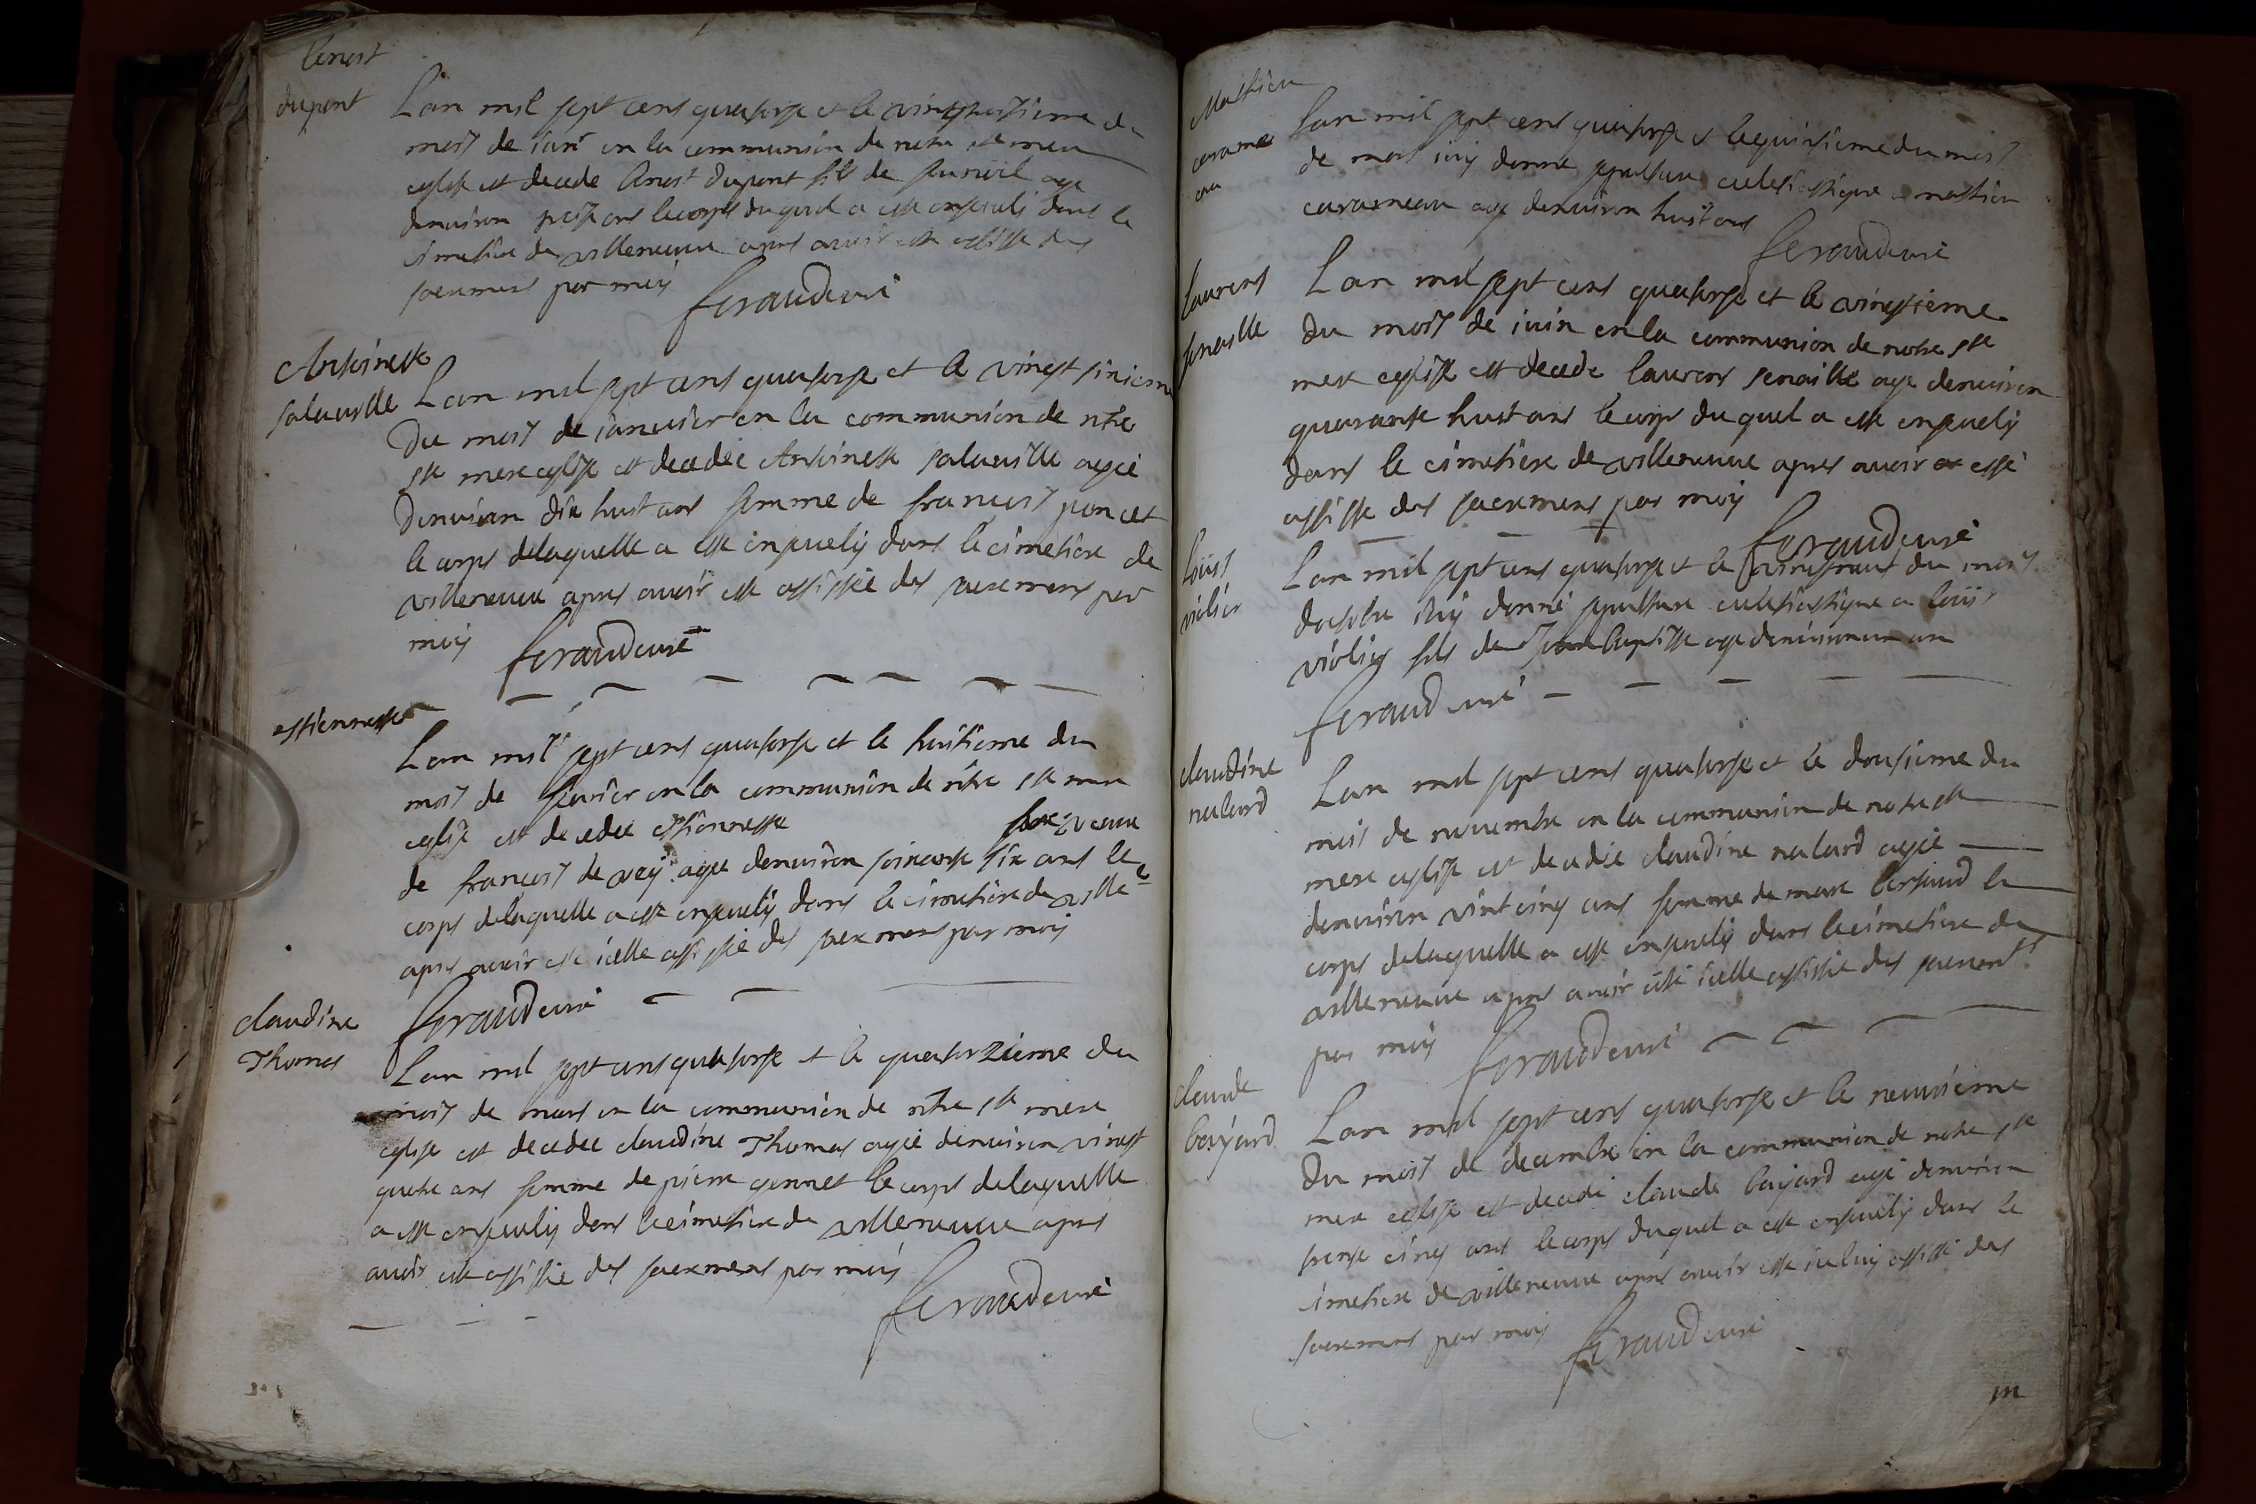 benoit
dupont
Lan mil sept cens quatorse et le vinthuitieme du
mois de ianr en la communion de notre ste mere
eglise est decede benoit dupont fils de
denviron ans le corps duquel a este enseveli dans le
cimetiere de villeneuve apres avoir este assisté des
sacremens par moÿ
feraud curé
Antoinette
salaville
Lan mil sept cens quatorse et le vingt sixieme
du mois de ianvier en la communion de ntre
ste mere eglise est decedée Antoinette salaville agée
denviron dix huit ans femme de francois poncet
le corps delaquelle a este ensevely dans le cimetiere de
villeneuve apres avoir este assistée des sacremens par
moÿ
feraud curé
estiennette
Lan mil sept cens quatorse et le huitieme du
mois de fevrier en la communion de ntre ste mere
eglise est decedée estiennette veuve
de francois de veÿ agee denviron soixante six ans le
corps delaquelle a este ensevelÿ dans le cimetiere de ville
apres avoir este icelle assistée des sacremens par moÿ
feraud curé
claudine
Thomas
Lan mil sept cens quatorse et le quatorzieme du
mois de mars en la communion de ntre ste mere
eglise est decedee claudine Thomas agée denviron vingt
quatre ans femme de pierre gonnet le corps delaquelle
a este ensevely dans le cimetiere de villeneuve apres
avoir este assistée des sacremens par moÿ
feraud curé
Mathieu
carame
au
Lan mil sept cens quatorse et le quinsieme du mois
de mars iaÿ donné sepulture eclesiastique a mathieu
carameau agé denviron huit ans
feraud curé
laurens
senaille
Lan mil sept cens quatorse et le vingtieme
du mois de iuin en la communion de notre ste
mere eglise est decede laurens senaille age denviron
quarante huit ans le corps duquel a este ensevelÿ
dans le cimetiere de villeneuve apres avoir esté
assisté des sacremens par moÿ
feraud curé
loüis
violier
Lan mil sept cens quatorse et le vintneuf du mois
doctobre iaÿ donné sepulture eclesiastique a loüis
violier fils de Jean baptiste age denviron un an
feraud curé
claudine
nalard
Lan mil sept cens quatorse et le dousieme du
mois de novembre en la communion de notre ste
mere eglise est decedée claudine nalard agée
denviron vint cinq ans femme de marc bertaud le
corps delaquelle a este ensevelÿ dans le cimetiere de
villeneuve apres avoir esté icelle assistée des sacremts
par moÿ
feraud curé
claude
baÿard
Lan mil sept cens quatorse et le neuvieme
du mois de decembre en la communion de notre ste
mere eglise est decedé claude baÿard agé denviron
trente cinq ans le corps duquel a este ensevelÿ dans le
cimetiere de villeneuve apres avoir este iceluÿ assisté des
sacremens par moÿ
feraud curé